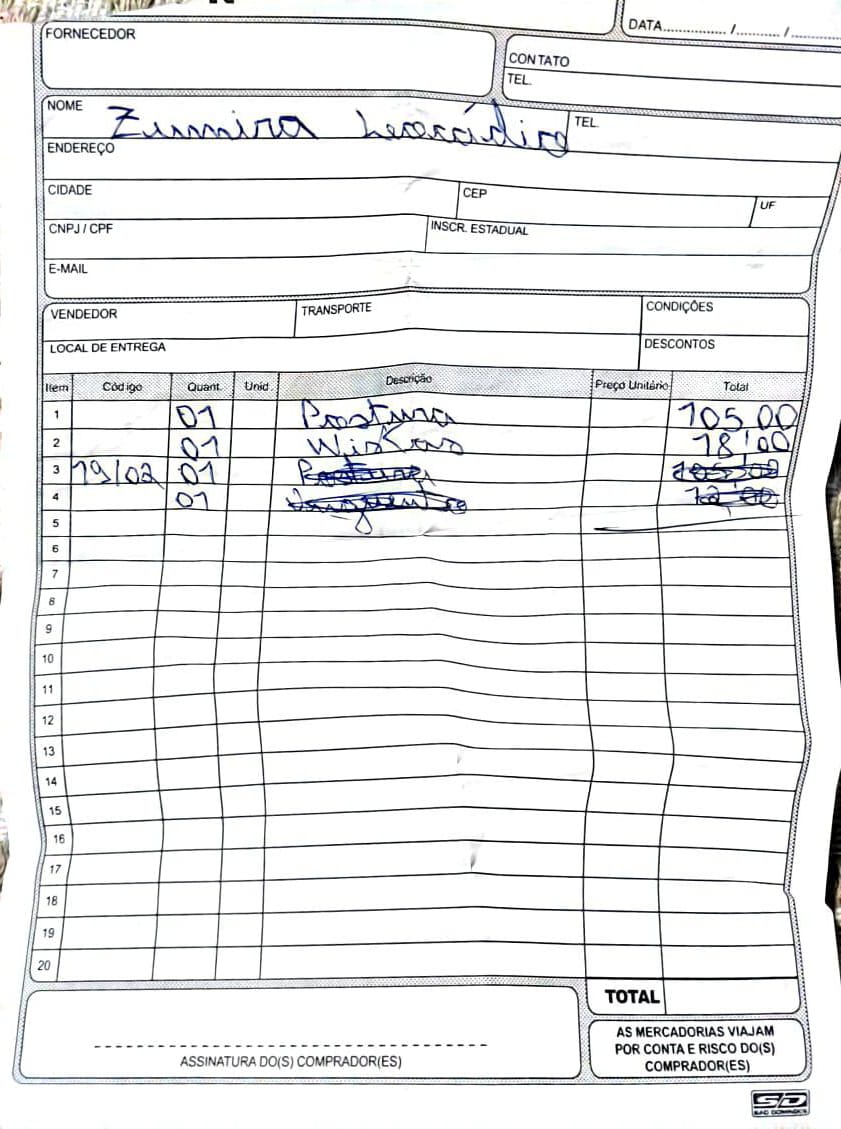 DATA ............... / .......... / ..........
FORNECEDOR
CONTATO
TEL.
NOME Zumira Leocádio TEL.
ENDEREÇO
CIDADE CEP UF
CNPJ / CPF INSCR. ESTADUAL
E-MAIL
VENDEDOR TRANSPORTE CONDIÇÕES
LOCAL DE ENTREGA DESCONTOS
Item Código Quant. Unid. Descrição Preço Unitário Total
1 01 Postura 105,00
2 01 Wiskas 18,00
3 19/02 01 Postura 105,00
4 01 12,00
5
6
7
8
9
10
11
12
13
14
15
16
17
18
19
20
TOTAL
ASSINATURA DO(S) COMPRADOR(ES)
AS MERCADORIAS VIAJAM
POR CONTA E RISCO DO(S)
COMPRADOR(ES)
SD
SÃO DOMINGOS